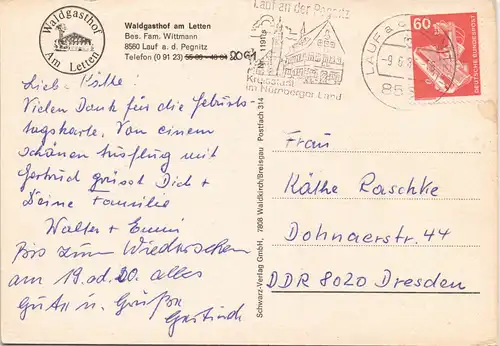 Waldgasthof
Am Letten
Waldgasthof am Letten
Bes. Fam. Wittmann
8560 Lauf a. d. Pegnitz
Telefon (0 91 23) 2061
Lauf an der Pegnitz
Kreisstadt
im Nürnberger Land
LAUF a d
60
DEUTSCHE BUNDESPOST
Liebe Käthe!
Vielen Dank für die Geburts-
tagskarte. Von einem
schönen Ausflug mit
Gertrud grüsst Dich +
Deine Familie
Walter + Emmi
Bis zum Wiedersehen
am 19. od. 20. alles
Gute u. Grüße
Gertrud
Schwarz-Verlag GmbH, 7808 Waldkirch/Breisgau Postfach 314
Frau
Käthe Raschke
Dohnaerstr. 44
DDR 8020 Dresden